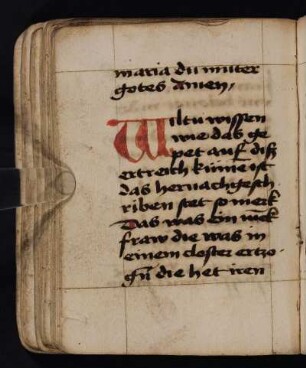 maria du muter
gotes Amen,
Wiltu wissen
wie das ge
pet auf diß
ertreich kume ist
das hernachgesch
riben stet so merk
Das was ein
fraw die was in
einem closter ertzo
gn̄ die het iren